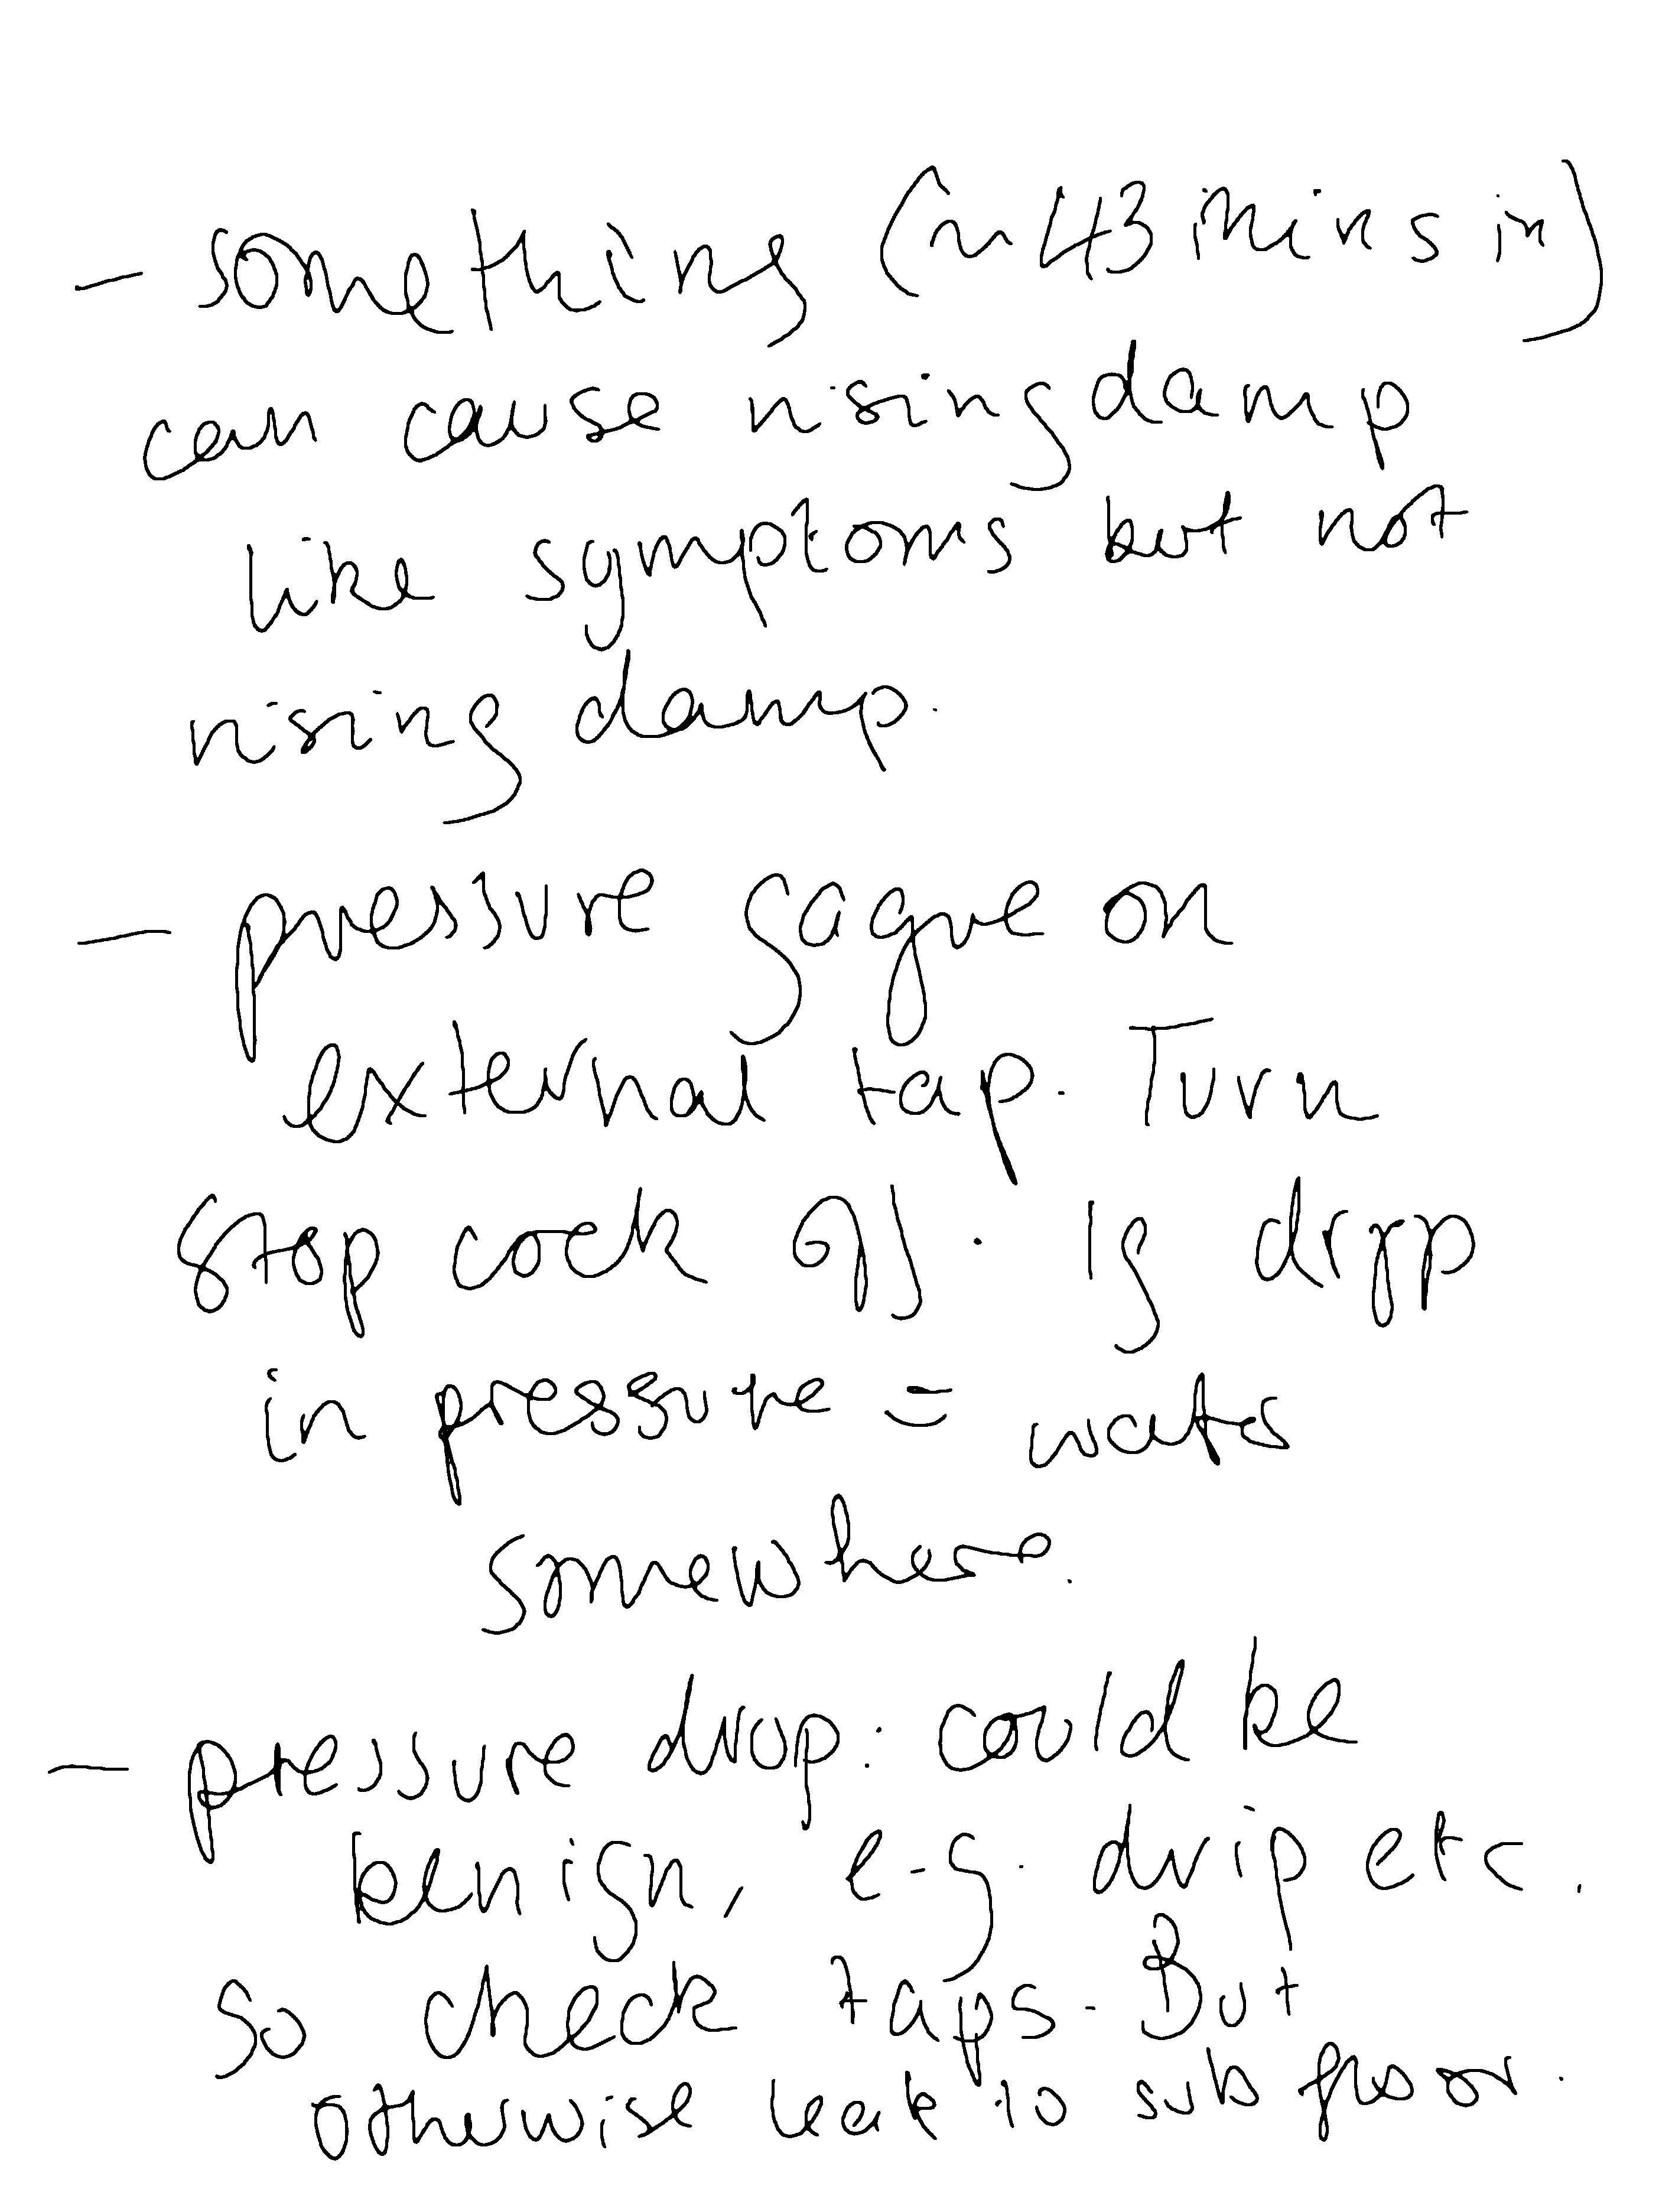 - something (~43 mins in)
can cause rising damp
like symptoms but not
rising damp.
- pressure gague on
external tap. Turn
stop cock off. If drop
in pressure = water
somewhere.
- pressure drop: could be
benign, e.g. drip etc.
So check taps. But
otherwise leak to sub floor.